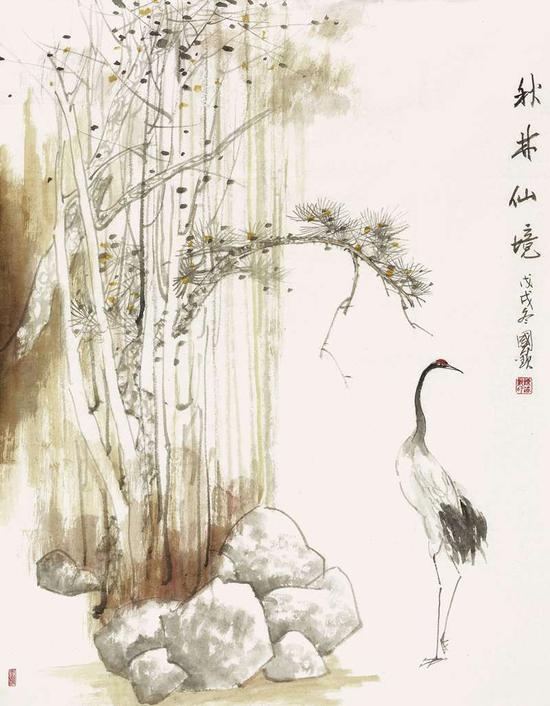 秋林仙境
戊戌冬國欽